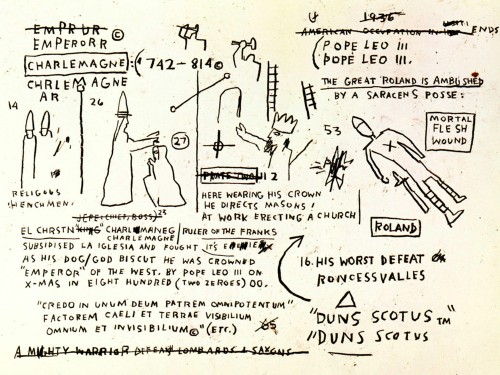 EMPRUR ©
EMPERORR
CHARLEMAGNE:(742-814©
CHRLEMAGNE
AR
14
26
27
RELIGOUS
HENCHMEN.
4 1936
AMERICAN OCCUPATION IN ENDS
(POPE LEO III
POPE LEO III.
THE GREAT ROLAND IS AMBUSHED
BY A SARACENS POSSE:
53
MORTAL
FLESH
WOUND
ROLAND
2
HERE WEARING HIS CROWN
HE DIRECTS MASONS!
AT WORK ERECTING A CHURCH
(CHIEF, BOSS) 23
EL CHRSTN "KING" CHARLMANEG
CHARLEMAGNE
RULER OF THE FRANKS
SUBSIDISED LA IGLESIA AND FOUGHT IT'S
AS HIS DOG/GOD BISCUT HE WAS CROWNED
"EMPEROR" OF THE WEST. BY POPE LEO III ON
X-MAS IN EIGHT HUNDRED (TWO ZEROES) 00.
16. HIS WORST DEFEAT
RONCESVALLES
"CREDO IN UNUM DEUM PATREM OMNIPOTENTUM"
FACTOREM CAELI ET TERRAE VISIBILIUM
OMNIUM ET INVISIBILIUM©" (ETC.)
"DUNS SCOTUS™
"DUNS SCOTUS
A MIGHTY WARRIOR DEFEAT LOMBARDS & SAXONS